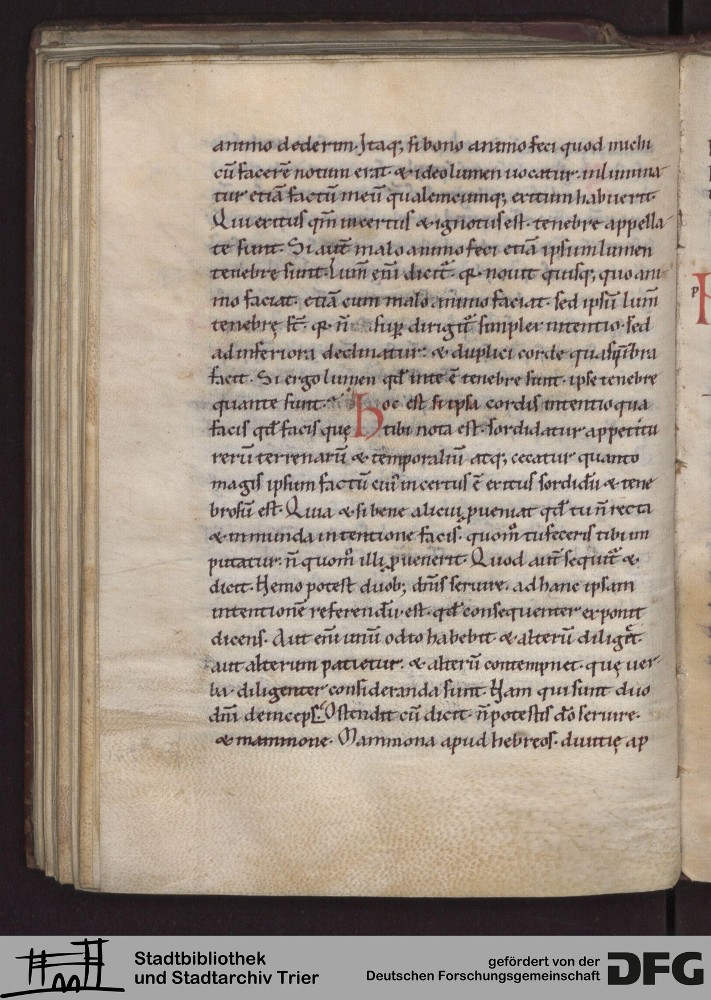 animo dederim. Itaq; si bono animo feci quod michi
cū facerē notum erat. & ideo lumen uocatur. inlumina
tur etiā factū meū qualemcumq; exitum habuerit.
Qui exitus qm̄ incertus & ignotus est. tenebre appella
te sunt. Si aut̄ malo animo feci etiā ipsum lumen
tenebre sunt. Lum̄ eni dicit. q. nouit quisq; quo ani
mo faciat. etiā cum malo animo faciat. sed ipsū lum̄
tenebrę st̄. q. n̄ sup dirigit simplex intentio. sed
ad inferiora declinatur. & duplici corde quasi ūbra
facit. Si ergo lumen qd̄ in te ē tenebre sunt. ipse tenebre
quante sunt. hoc est si ipsa cordis intentio qua
facis qd̄ facis quę tibi nota est. sordidatur appetitu
rerū terrenarū & temporaliū atq; cecatur quanto
magis ipsum factū cui incertus ē exitus sordidū & tene
brosū est. Quia & si bene alicui pueniat qd̄ tu n̄ recta
& in munda intentione facis. quom̄ tu feceris tibi im
putatur. n̄ quom̄ illi puenerit. Quod aut̄ sequit &
dicit. Nemo potest duob; dn̄is seruire. ad hanc ipsam
intentionē referendū est. qd̄ consequenter exponit
dicens. Aut eni unū odio habebit & alterū diliget
aut alterum patietur. & alterū contempnet. quę uer
ba diligenter consideranda sunt. Nam qui sunt duo
dn̄i deinceps. Ostendit cū dicit. n̄ potestis dō seruire.
& mammone. Mammona apud hebreos. diuitię ap
Stadtbibliothek
und Stadtarchiv Trier
gefördert von der
Deutschen Forschungsgemeinschaft
DFG